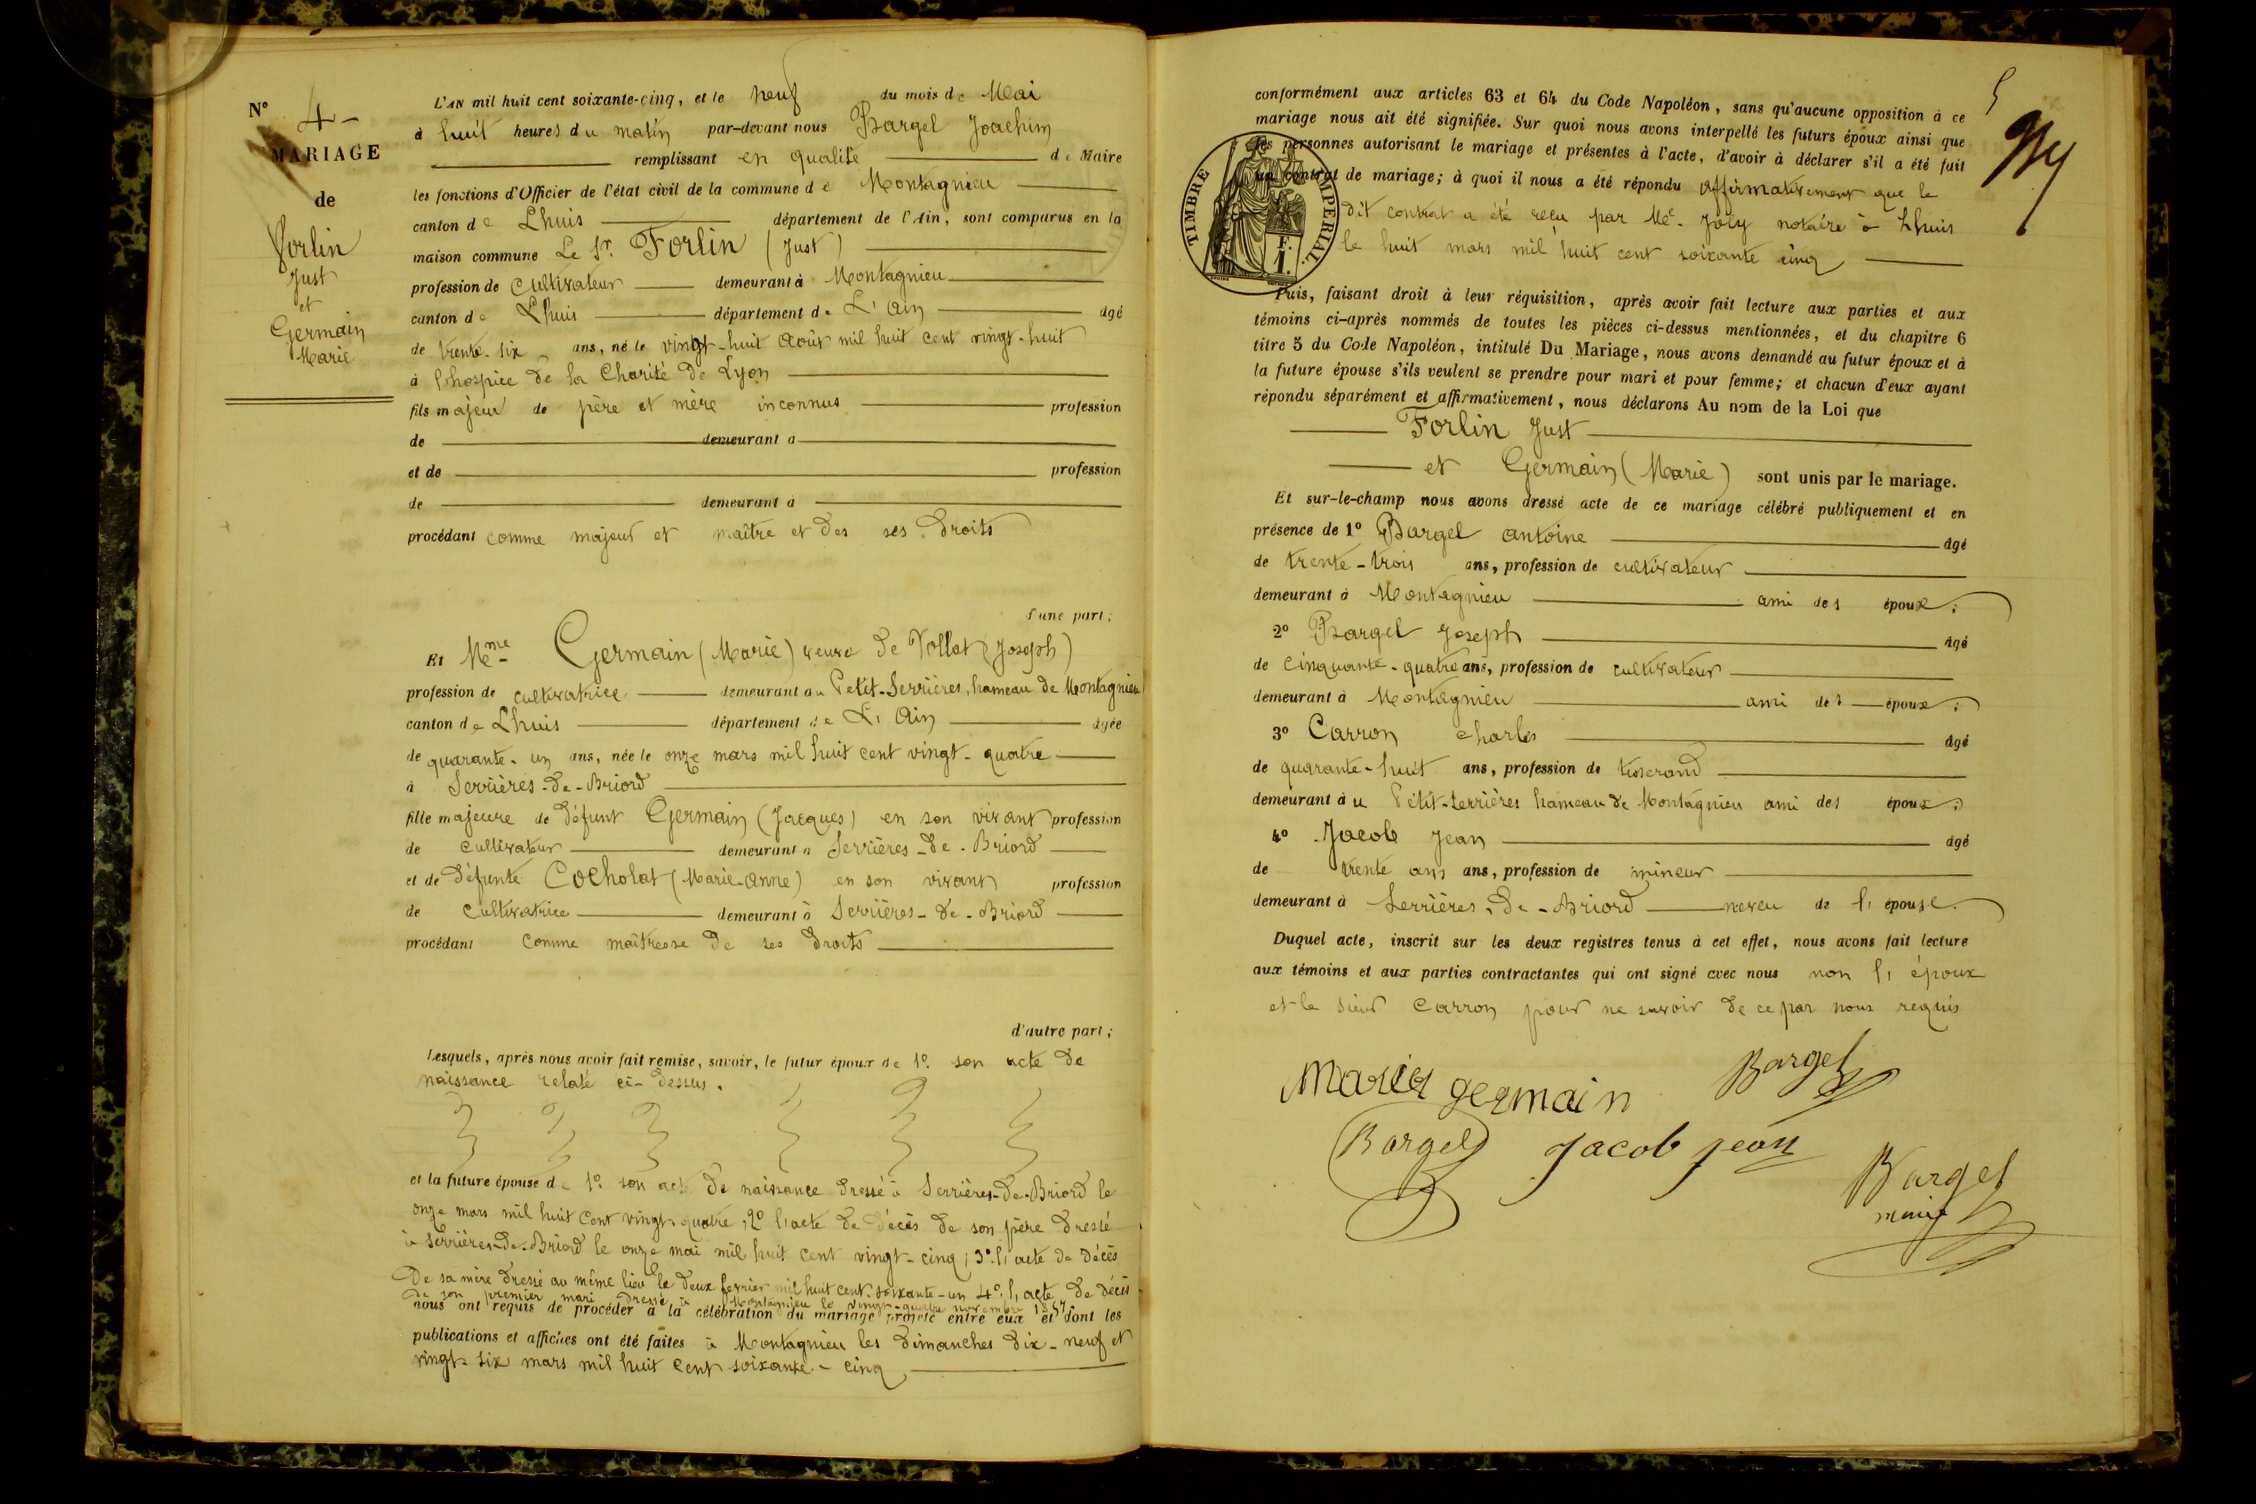 N° 4 -
MARIAGE
de
Forlin
Just
et
Germain
Marie
L'AN mil huit cent soixante-cinq, et le neuf du mois de Mai
à huit heures du matin par-devant nous Bargel Joachim
remplissant en qualité de Maire
les fonctions d'Officier de l'état civil de la commune de Montagnieu
canton de Lhuis département de l'Ain, sont comparus en la
maison commune Le Sr. Forlin (Just)
profession de cultivateur demeurant à Montagnieu
canton de Lhuis département de L'Ain âgé
de trente-six ans, né le vingt-huit Août mil huit cent vingt-huit
à l'hospice de la Charité de Lyon
fils majeur de père et mère inconnus profession
de demeurant à
et de profession
de demeurant à
procédant comme majeur et maître et des ses droits
d'une part;
Et Mme Germain (Marie) veuve de Vollat (Joseph)
profession de cultivatrice demeurant au Petit-Serrières, hameau de Montagnieu
canton de Lhuis département de L'Ain âgée
de quarante-un ans, née le onze mars mil huit cent vingt-quatre
à Serrières-de-Briord
fille majeure de défunt Germain (Jacques) en son vivant profession
de cultivateur demeurant à Serrières-de-Briord
et de défunte Cocholat (Marie-Anne) en son vivant profession
de cultivatrice demeurant à Serrières-de-Briord
procédant comme maîtresse de ses droits
d'autre part;
Lesquels, après nous avoir fait remise, savoir, le futur époux de 1° son acte de
naissance relaté ci-dessus.
et la future épouse de 1° son acte de naissance dressé à Serrières-de-Briord le
onze mars mil huit cent vingt-quatre, 2° l'acte de décès de son père dressé
à Serrières-de-Briord le onze mai mil huit cent vingt-cinq; 3° l'acte de décès
de sa mère dressé au même lieu le deux fevrier mil huit cent soixante-un 4° l'acte de décès
de son premier mari dressé à Montagnieu le vingt-quatre novembre
nous ont requis de procéder à la célébration du mariage projeté entre eux et dont les
publications et affiches ont été faites à Montagnieu les dimanches dix-neuf et
vingt-six mars mil huit cent soixante-cinq
5
conformément aux articles 63 et 64 du Code Napoléon, sans qu'aucune opposition à ce
mariage nous ait été signifiée. Sur quoi nous avons interpellé les futurs époux ainsi que
les personnes autorisant le mariage et présentes à l'acte, d'avoir à déclarer s'il a été fait
un contrat de mariage; à quoi il nous a été répondu affirmativement que le
dit contrat a été reçu par Me. Joly notaire à Lhuis
le huit mars mil huit cent soixante cinq
TIMBRE IMPERIAL.
F.
1.
Puis, faisant droit à leur réquisition, après avoir fait lecture aux parties et aux
témoins ci-après nommés de toutes les pièces ci-dessus mentionnées, et du chapitre 6
titre 5 du Code Napoléon, intitulé Du Mariage, nous avons demandé au futur époux et à
la future épouse s'ils veulent se prendre pour mari et pour femme; et chacun d'eux ayant
répondu séparément et affirmativement, nous déclarons Au nom de la Loi que
Forlin Just
et Germain (Marie) sont unis par le mariage.
Et sur-le-champ nous avons dressé acte de ce mariage célébré publiquement et en
présence de 1° Bargel Antoine âgé
de trente-trois ans, profession de cultivateur
demeurant à Montagnieu ami des époux;
2° Bargel Joseph âgé
de cinquante-quatre ans, profession de cultivateur
demeurant à Montagnieu ami des époux;
3° Carron Charles âgé
de quarante-huit ans, profession de tisserand
demeurant à u Petit-Serrières hameau de Montagnieu ami des époux;
4° Jacob Jean âgé
de trente ans ans, profession de mineur
demeurant à Serrières-de-Briord neveu de l'épouse.
Duquel acte, inscrit sur les deux registres tenus à cet effet, nous avons fait lecture
aux témoins et aux parties contractantes qui ont signé avec nous non l'époux
et le sieur Carron pour ne savoir de ce par nous requis
Marie germain Bargel
Bargel Jacob jean
Bargel
maire